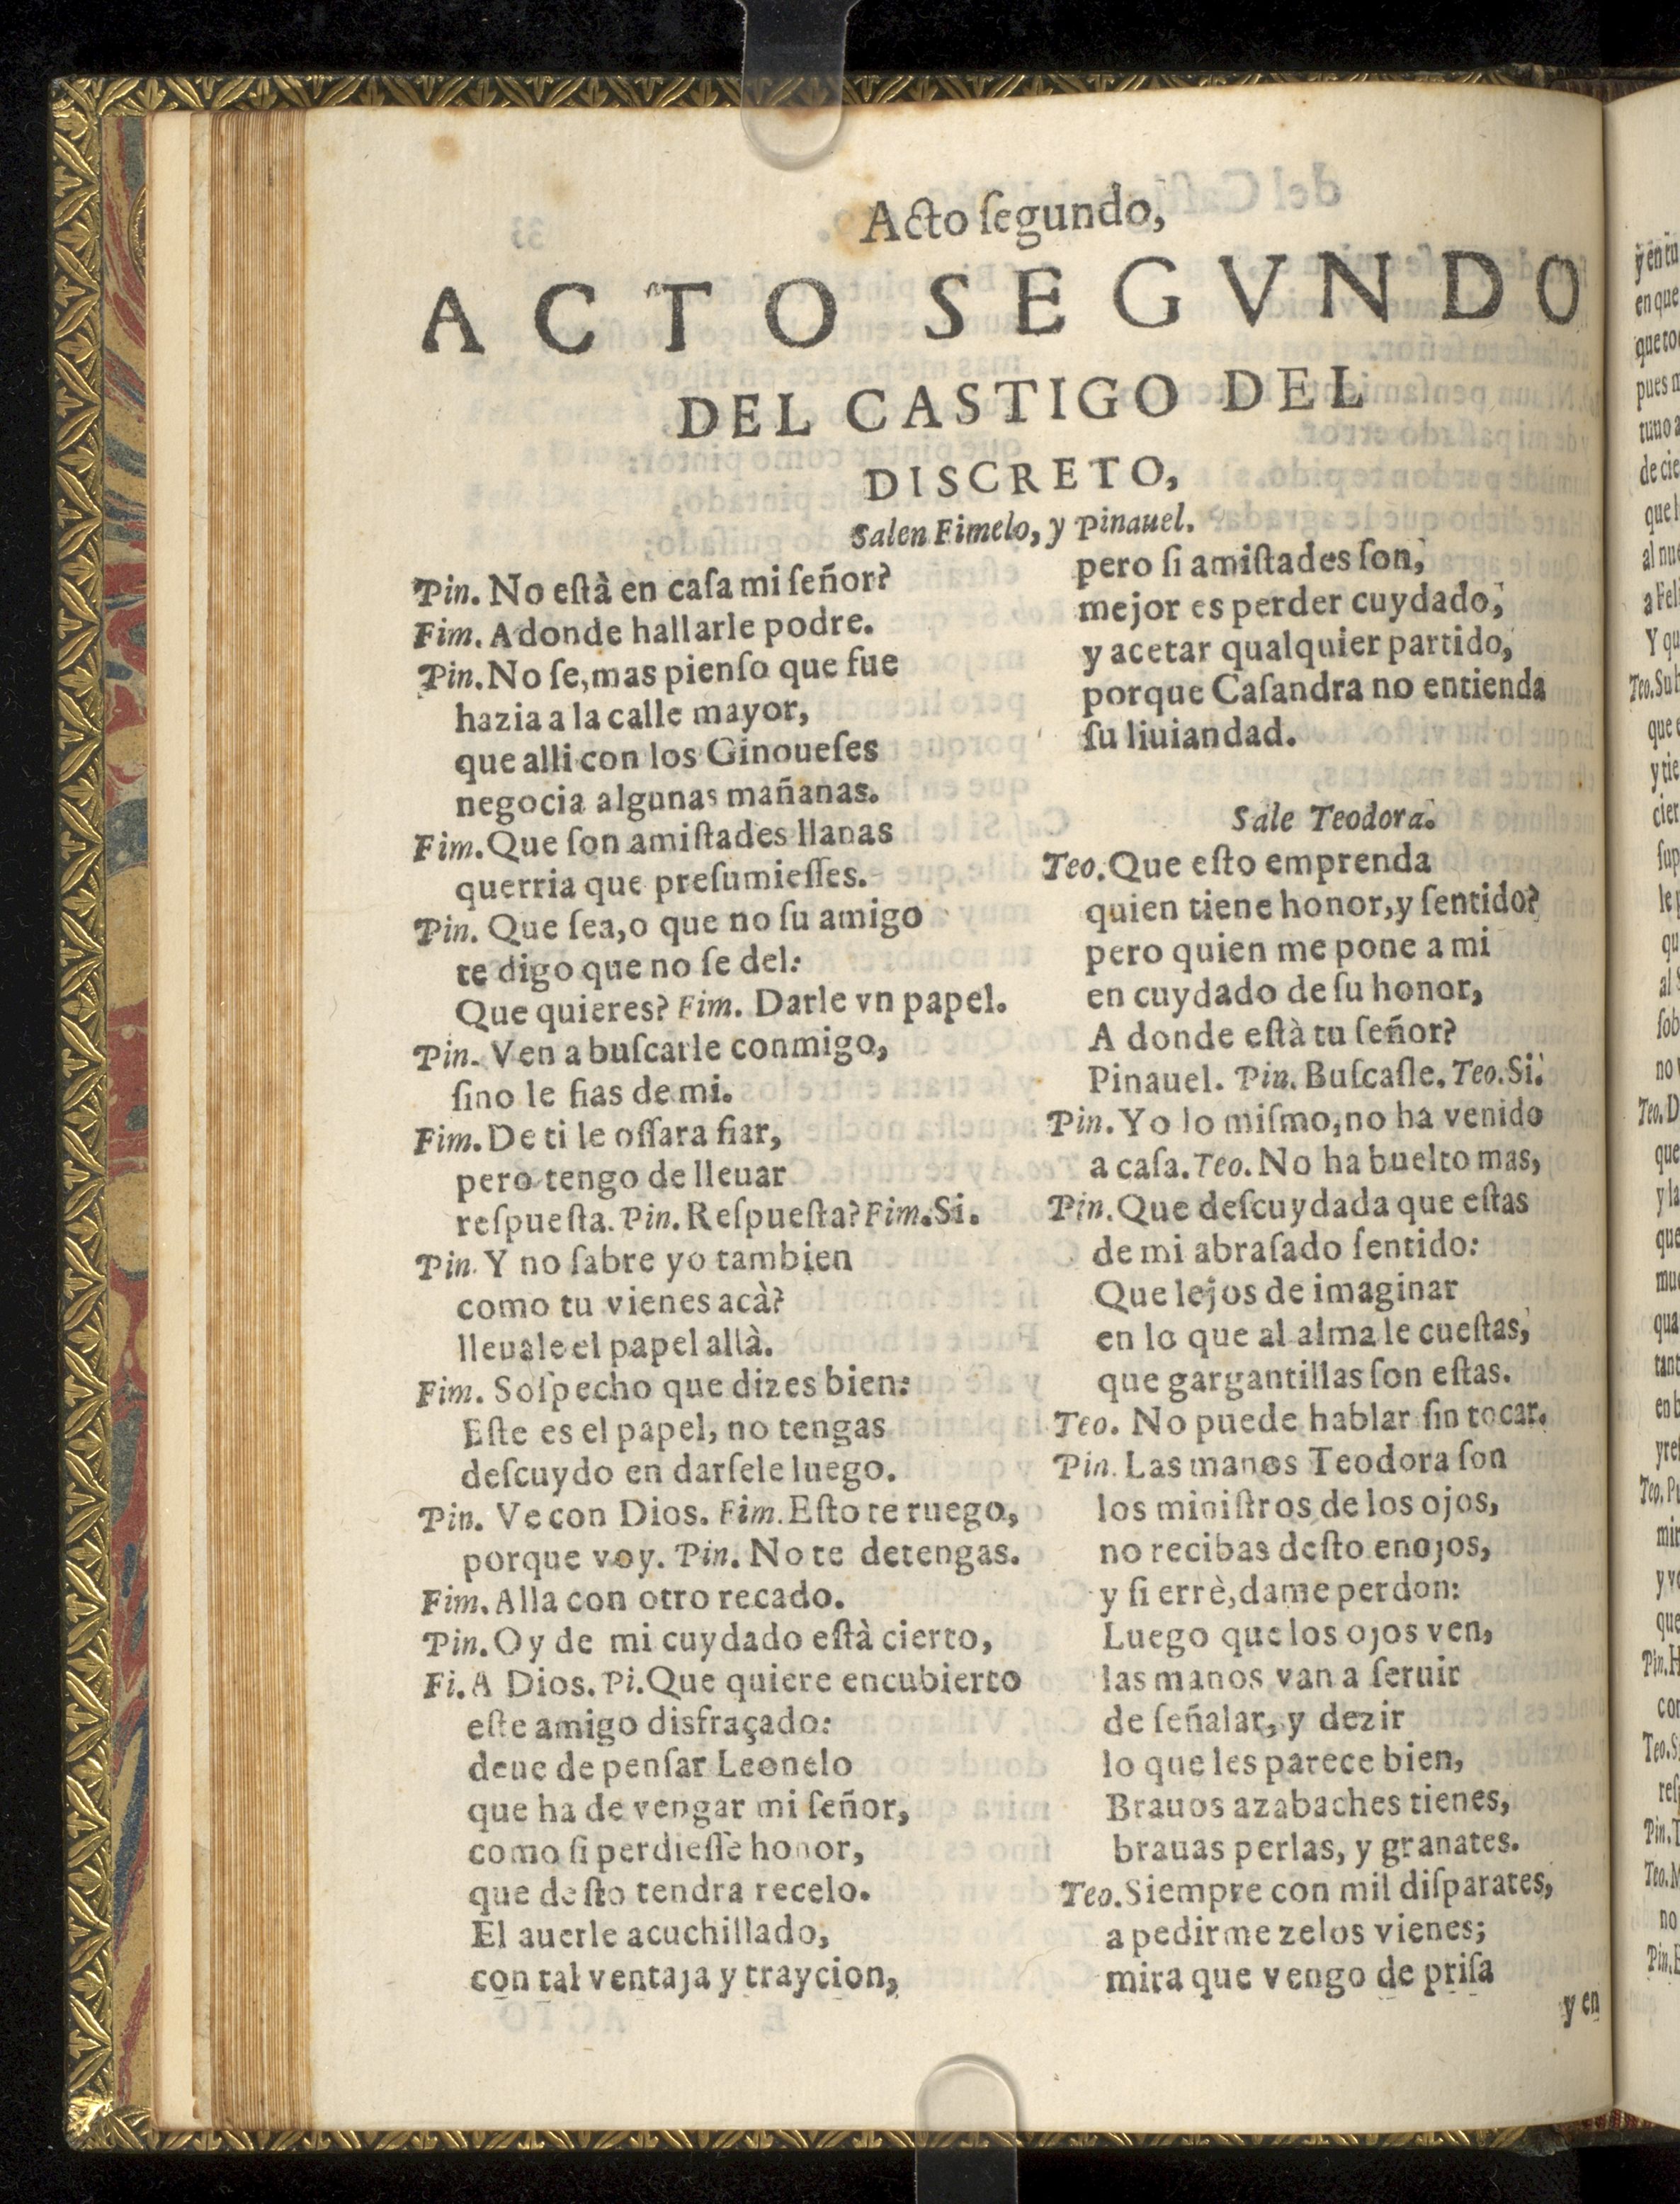 Acto ſegundo,
ACTO SEGVNDO
DEL CASTIGO DEL
DISCRETO,
Salen Fimelo, y Pinauel.
Pin. No eſtà en caſa mi ſeñor?
Fim. Adonde hallarle podre.
Pin. No ſe, mas pienſo que fue
hazia a la calle mayor,
que alli con los Ginoueſes
negocia algunas mañanas.
Fim. Que ſon amiſtades llanas
querria que preſumieſſes.
Pin. Que ſea, o que no ſu amigo
te digo que no ſe del:
Que quieres? Fim. Darle vn papel.
Pin. Ven a buſcarle conmigo,
ſino le fias de mi.
Fim. De ti le oſſara fiar,
pero tengo de lleuar
reſpueſta. Pin. Reſpueſta? Fim. Si.
Pin. Y no ſabre yo tambien
como tu vienes acà?
lleuale el papel allà.
Fim. Soſpecho que dizes bien:
Eſte es el papel, no tengas
deſcuydo en darſele luego.
Pin. Ve con Dios. Fim. Eſto te ruego,
porque voy. Pin. No te detengas.
Fim. Alla con otro recado.
Pin. Oy de mi cuydado eſtà cierto,
Fi. A Dios. Pi. Que quiere encubierto
eſte amigo disfraçado:
deue de penſar Leonelo
que ha de vengar mi ſeñor,
como ſi perdieſſe honor,
que deſto tendra recelo.
El auerle acuchillado,
con tal ventaja y traycion,
pero ſi amiſtades ſon,
mejor es perder cuydado,
y acetar qualquier partido,
porque Caſandra no entienda
ſu liuiandad.
Sale Teodora.
Teo. Que eſto emprenda
quien tiene honor, y ſentido?
pero quien me pone a mi
en cuydado de ſu honor,
A donde eſtà tu ſeñor?
Pinauel. Pin. Buſcaſle. Teo. Si.
Pin. Yo lo miſmo, no ha venido
a caſa. Teo. No ha buelto mas,
Pin. Que deſcuydada que eſtas
de mi abraſado ſentido:
Que lejos de imaginar
en lo que al alma le cueſtas,
que gargantillas ſon eſtas.
Teo. No puede hablar ſin tocar.
Pin. Las manos Teodora ſon
los miniſtros de los ojos,
no recibas deſto enojos,
y ſi errè, dame perdon:
Luego que los ojos ven,
las manos van a ſeruir
de ſeñalar, y dezir
lo que les parece bien,
Brauos azabaches tienes,
brauas perlas, y granates.
Teo. Siempre con mil diſparates,
a pedirme zelos vienes;
mira que vengo de priſa
y en